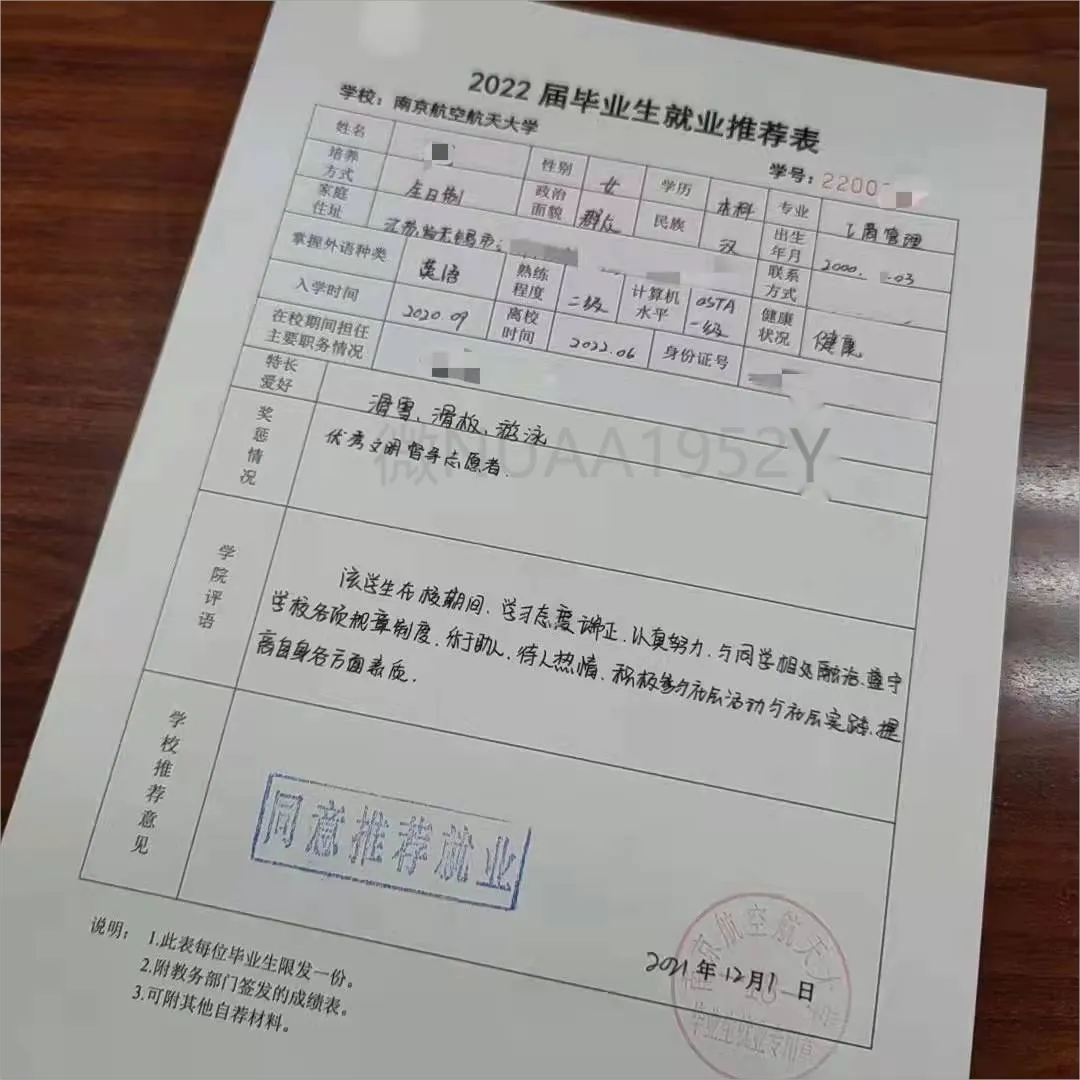 2022 届毕业生就业推荐表
学校：南京航空航天大学
学号：2200
姓名 性别 女 学历 本科 专业 工商管理
培养方式 全日制 政治面貌 群众 民族 汉 出生年月 2000. .03
家庭住址 江苏省无锡市 联系方式
掌握外语种类 英语 熟练程度 二级 计算机水平 OSTA一级 健康状况 健康
入学时间 2020.09 离校时间 2022.06 身份证号
在校期间担任主要职务情况
特长爱好 滑雪、滑板、游泳
奖惩情况 优秀文明督导志愿者.
微NUAA1952Y
学院评语
该学生在校期间、学习态度端正、认真努力、与同学相处融洽、遵守
学校各项规章制度、乐于助人、待人热情、积极参与社会活动与社会实践、提
高自身各方面素质.
学校推荐意见
同意推荐就业
2021年12月1日
京航空航天大
毕业生就业专用章
说明： 1.此表每位毕业生限发一份。
2.附教务部门签发的成绩表。
3.可附其他自荐材料。